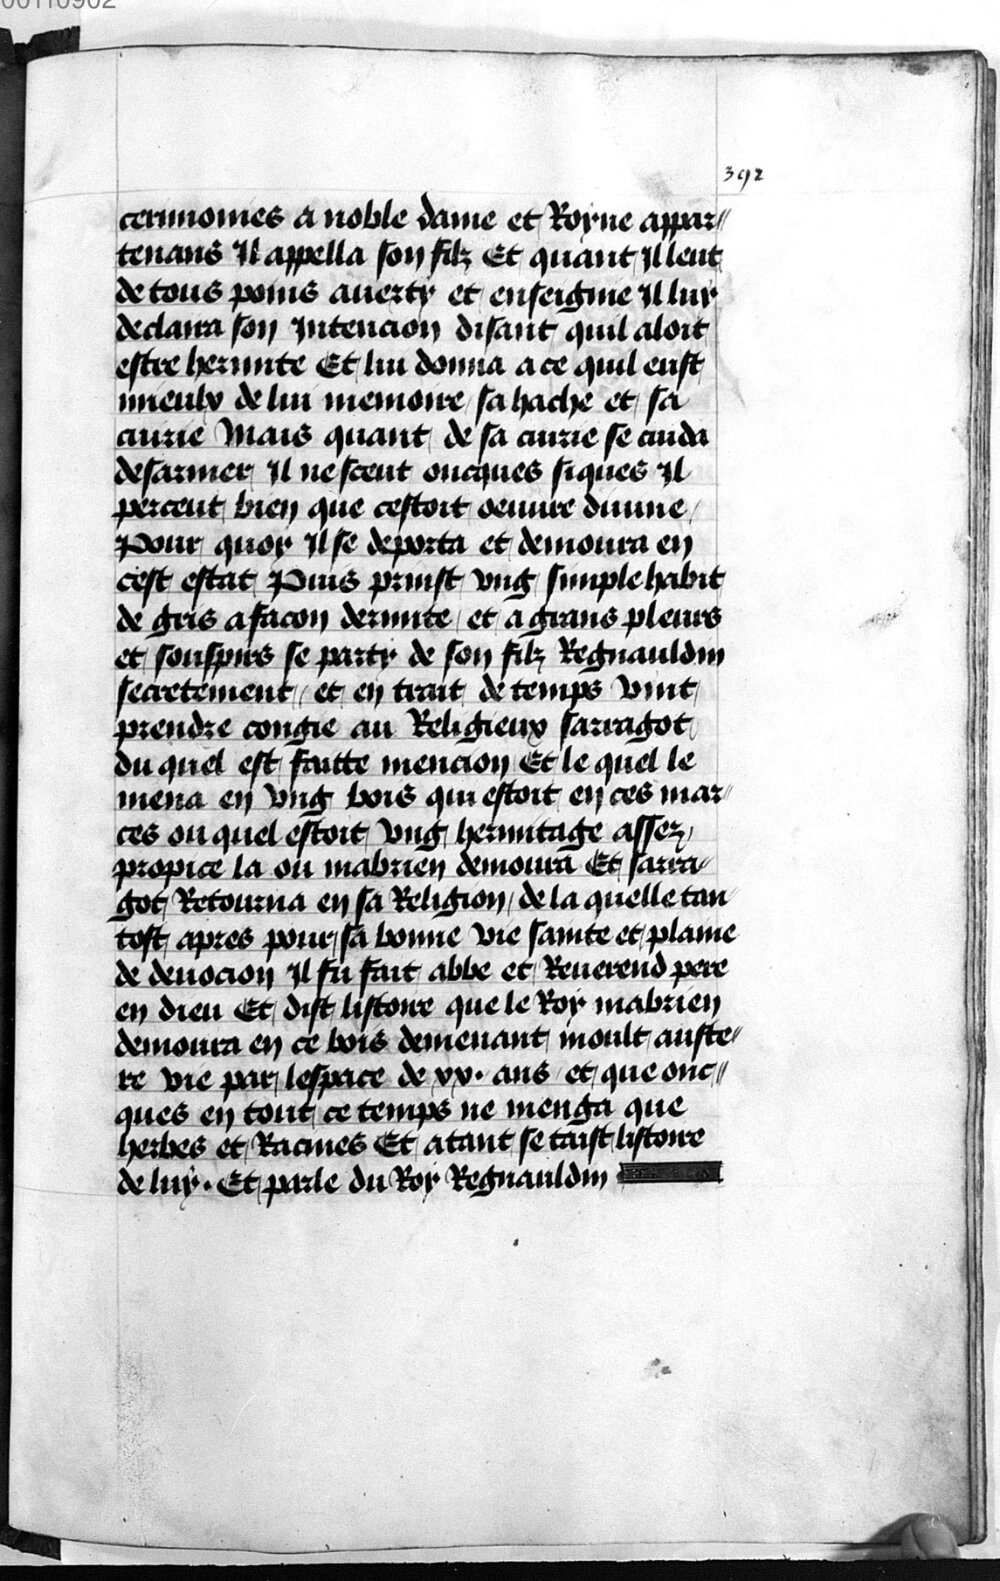 00110902
392
cerimonies a noble dame et Royne appar//
tenans Il appella son filz Et quant Il leut
de tous poins auerty et enseignie Il luy
declaira son Intencion disant quil aloit
estre hermite Et lui donna a ce quil eust
mieulx de lui memoire sa hache et sa
cuirie Mais quant de sa cuirie se cuida
desarmer Il ne sceut oncques siques Il
perceut bien que cestoit oeuure diuine
Pour quoy Il se deporta et demoura en
cest estat Puis prinst vng simple habit
de gris a facon dermite et a grans pleurs
et souspirs se party de son filz Regnauldin
secretement et en trait de temps vint
prendre congie au Religieux sarragot
du quel est faitte mencion Et le quel le
mena en vng bois qui estoit en ces mar//
ces ou quel estoit vng hermitage assez
propice la ou mabrien demoura Et sarra//
got Retourna en sa Religion / de la quelle tan
tost apres pour sa bonne vie sainte et plaine
de deuocion Il fu fait abbe et Reuerend pere
en dieu Et dist listoire que le Roy mabrien
demoura en ce bois demenant moult auste//
re vie par lespace de xx. ans et que onc//
ques en tout ce temps ne menga que
herbes et Racines Et atant se taist listoire
de luy. Et parle du Roy Regnauldin